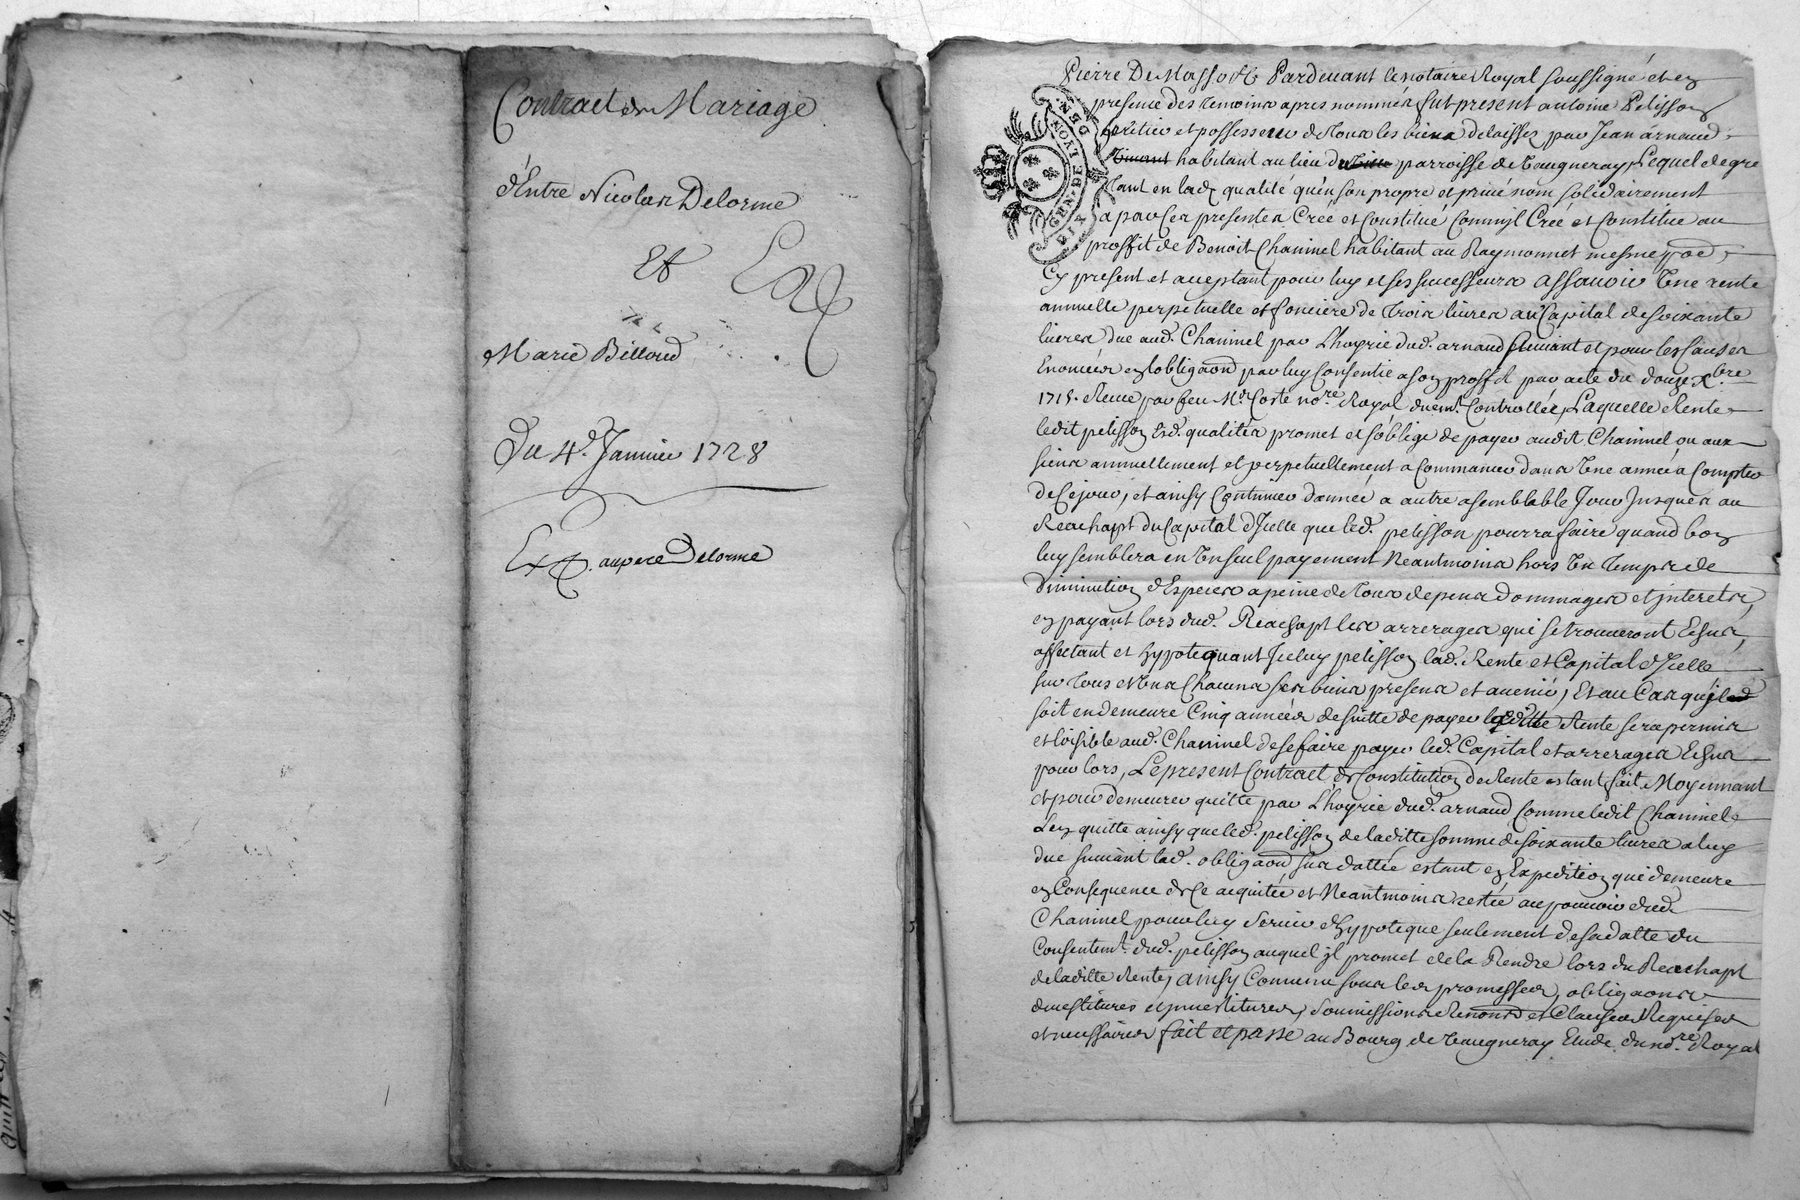 Contract de Mariage
d'Entre Nicolas Delorme
Et
Marie Billoud
Du 4e. Janvier 1728
Exp. au pere Delorme
Pierre De Masso & Pardevant le notaire Royal soussigné et en
presence des temoins apres nommés fut present antoine Pelisson
heritier et possesseur de tous les biens delaissés par Jean arnaud
habitant au lieu parroisse de Vaugneray, Lequel de gre
tant en lad. qualité qu'en son propre et privé nom solidairement
a par ces presentes Créé et Constitué Comm'il Créé et Constitue au
proffit de Benoit Chaninel habitant au Raymonnet mesme
Cy present et acceptant pour luy et ses successeurs assavoir Une rente
annuelle perpetuelle et fonciere de trois livres au Capital de soixante
livres due aud. Chaninel par L'hoyrie dud. arnaud suivant et pour les causes
Enoncées en lobligaon par luy Consentie a son proffit par acte du douze Xbre
1715. Receue par feu Mr. Coste nore. Royal Controllée, Laquelle Rente
ledit pelisson Esd. qualités promet et soblige de payer audit Chaninel ou aux
siens annuellement et perpetuellement a Commancer dans Une année a Compter
de Ce jour, et ainsy Continuer d'année a autre a semblable Jour Jusques au
Reachapt du Capital d'Icelle que led. pelisson pourra faire quand bon
luy semblera en Un seul payement Neantmoins hors Un Temps de
Diminution d'Especes a peine de tous depens dommages et interets,
en payant lors dud. Reachapt les arrerages qui se trouveront Echus,
affectant et hypotequant Iceluy pelisson lad. Rente et Capital d'Icelle
sur tous et Uns Chacuns ses biens presens et avenir, Et au Cas qu'il
soit en demeure Cinq années de suitte de payer Rente sera permis
et loisible aud. Chaninel de se faire payer led. Capital et arrerages Echus
pour lors, Le present Contract de Constitution de Rente estant fait Moyennant
et pour demeurer quitte par L'hoyrie dud. arnaud Comme ledit Chaninel
Len quitte ainsy que led. pelisson de laditte somme de soixante livres a luy
due suivant lad. obligaon sus dattée estant en Expedition qui demeure
en Consequence de Ce acquitée et Neantmoins restée au pouvoir dud.
Chaninel pour luy servir d'hypoteque seulement de sa datte du
Consentemt. dud. pelisson auquel il promet de la Rendre lors du Reachapt
de laditte Rente, ainsy Convenu sous les promesses, obligaons
devestitures et investitures, Soumissions Renons et Clauses Requises
et necessaires fait et passé au Bourg de Vaugneray Etude du nore. Royal